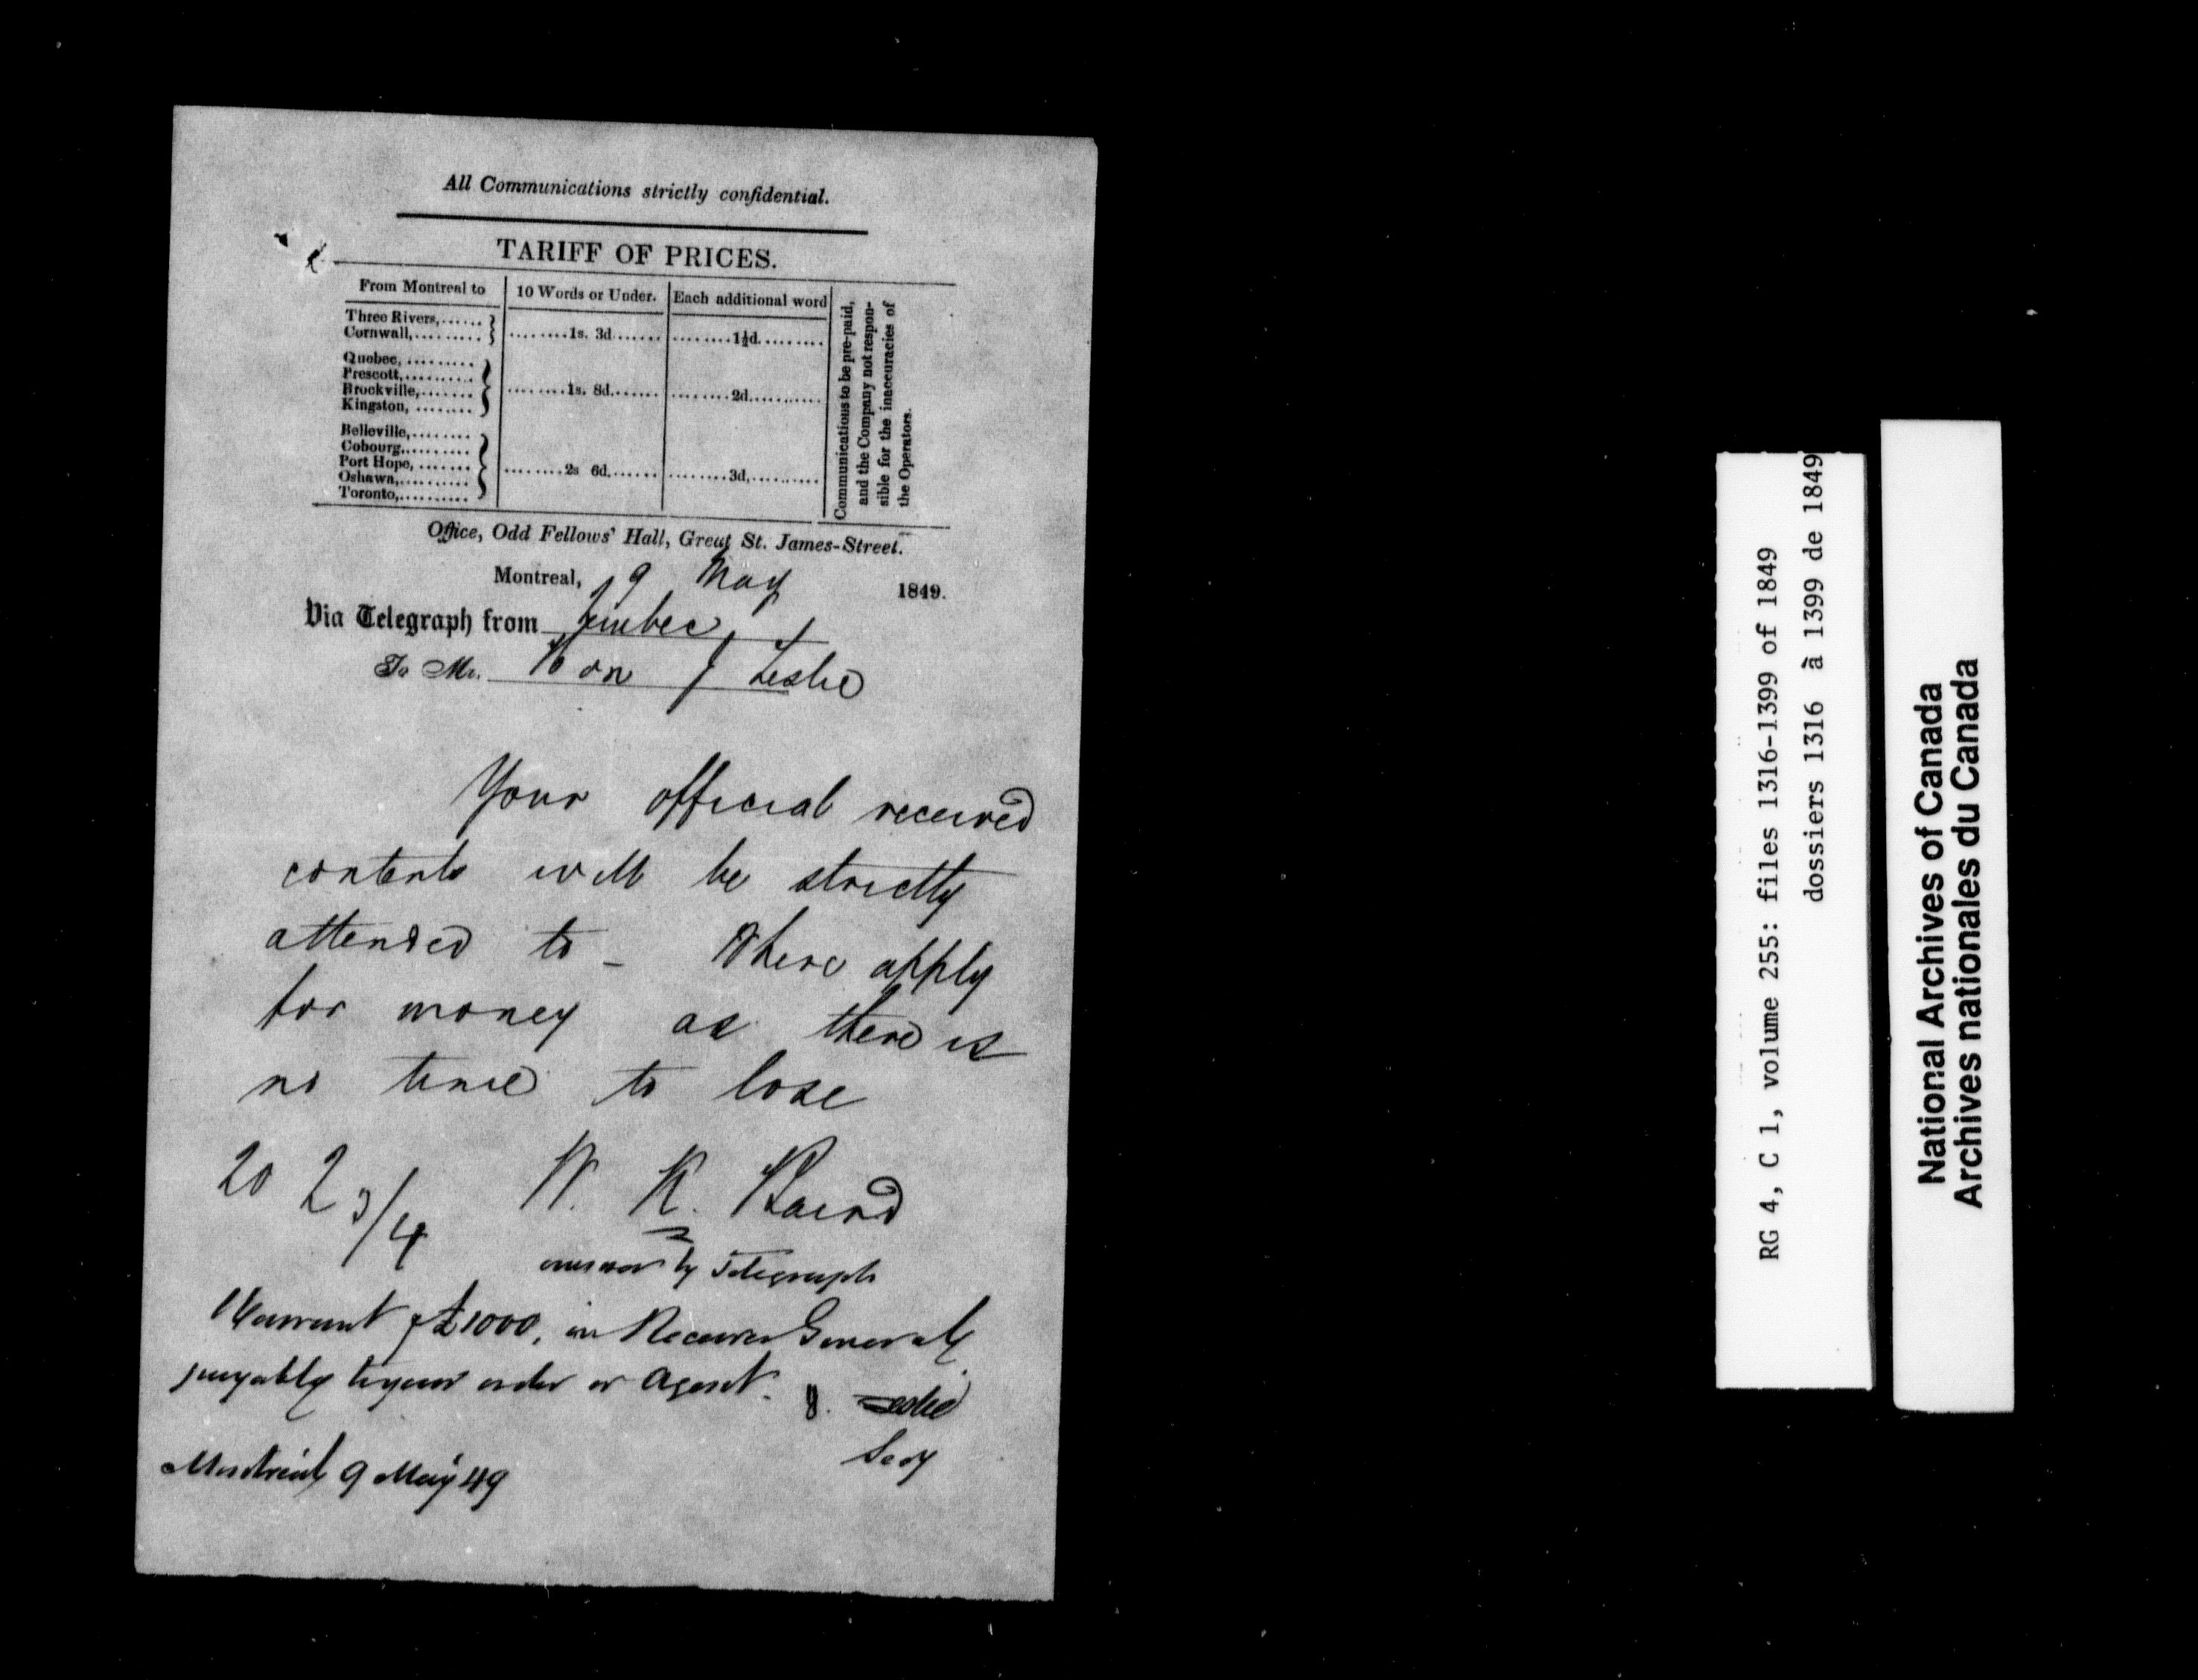 All Communications strictly confidential.
TARIFF OF PRICES.
From Montreal to | 10 Words or Under. | Each additional word
Three Rivers,......
Cornwall,......... ........1s. 3d....... ........1½d.........
Quebec, ..........
Prescott,..........
Brockville,....... ........1s. 8d....... ........2d...........
Kingston, ........
Belleville,........
Cobourg,.........
Port Hope, ....... ........2s 6d....... ........3d,..........
Oshawa,..........
Toronto,..........
Communications to be pre-paid,
and the Company not respon-
sible for the inaccuracies of
the Operators.
Office, Odd Fellows' Hall, Great St. James-Street.
Montreal, 9 May 1849.
Via Telegraph from Quebec
To Mr. Hon J Leslie
Your official received
contents will be strictly
attended to - Where apply
for money as there is
no time to lose
20 2 3/4 W. K. Baird
answer by Telegraph
Warrant £1000, in Receiver General
payable to your order or Agent.
J. Leslie
Secy
Montreal 9 May 49
RG 4, C 1, volume 255: files 1316-1399 of 1849
dossiers 1316 à 1399 de 1849
National Archives of Canada
Archives nationales du Canada